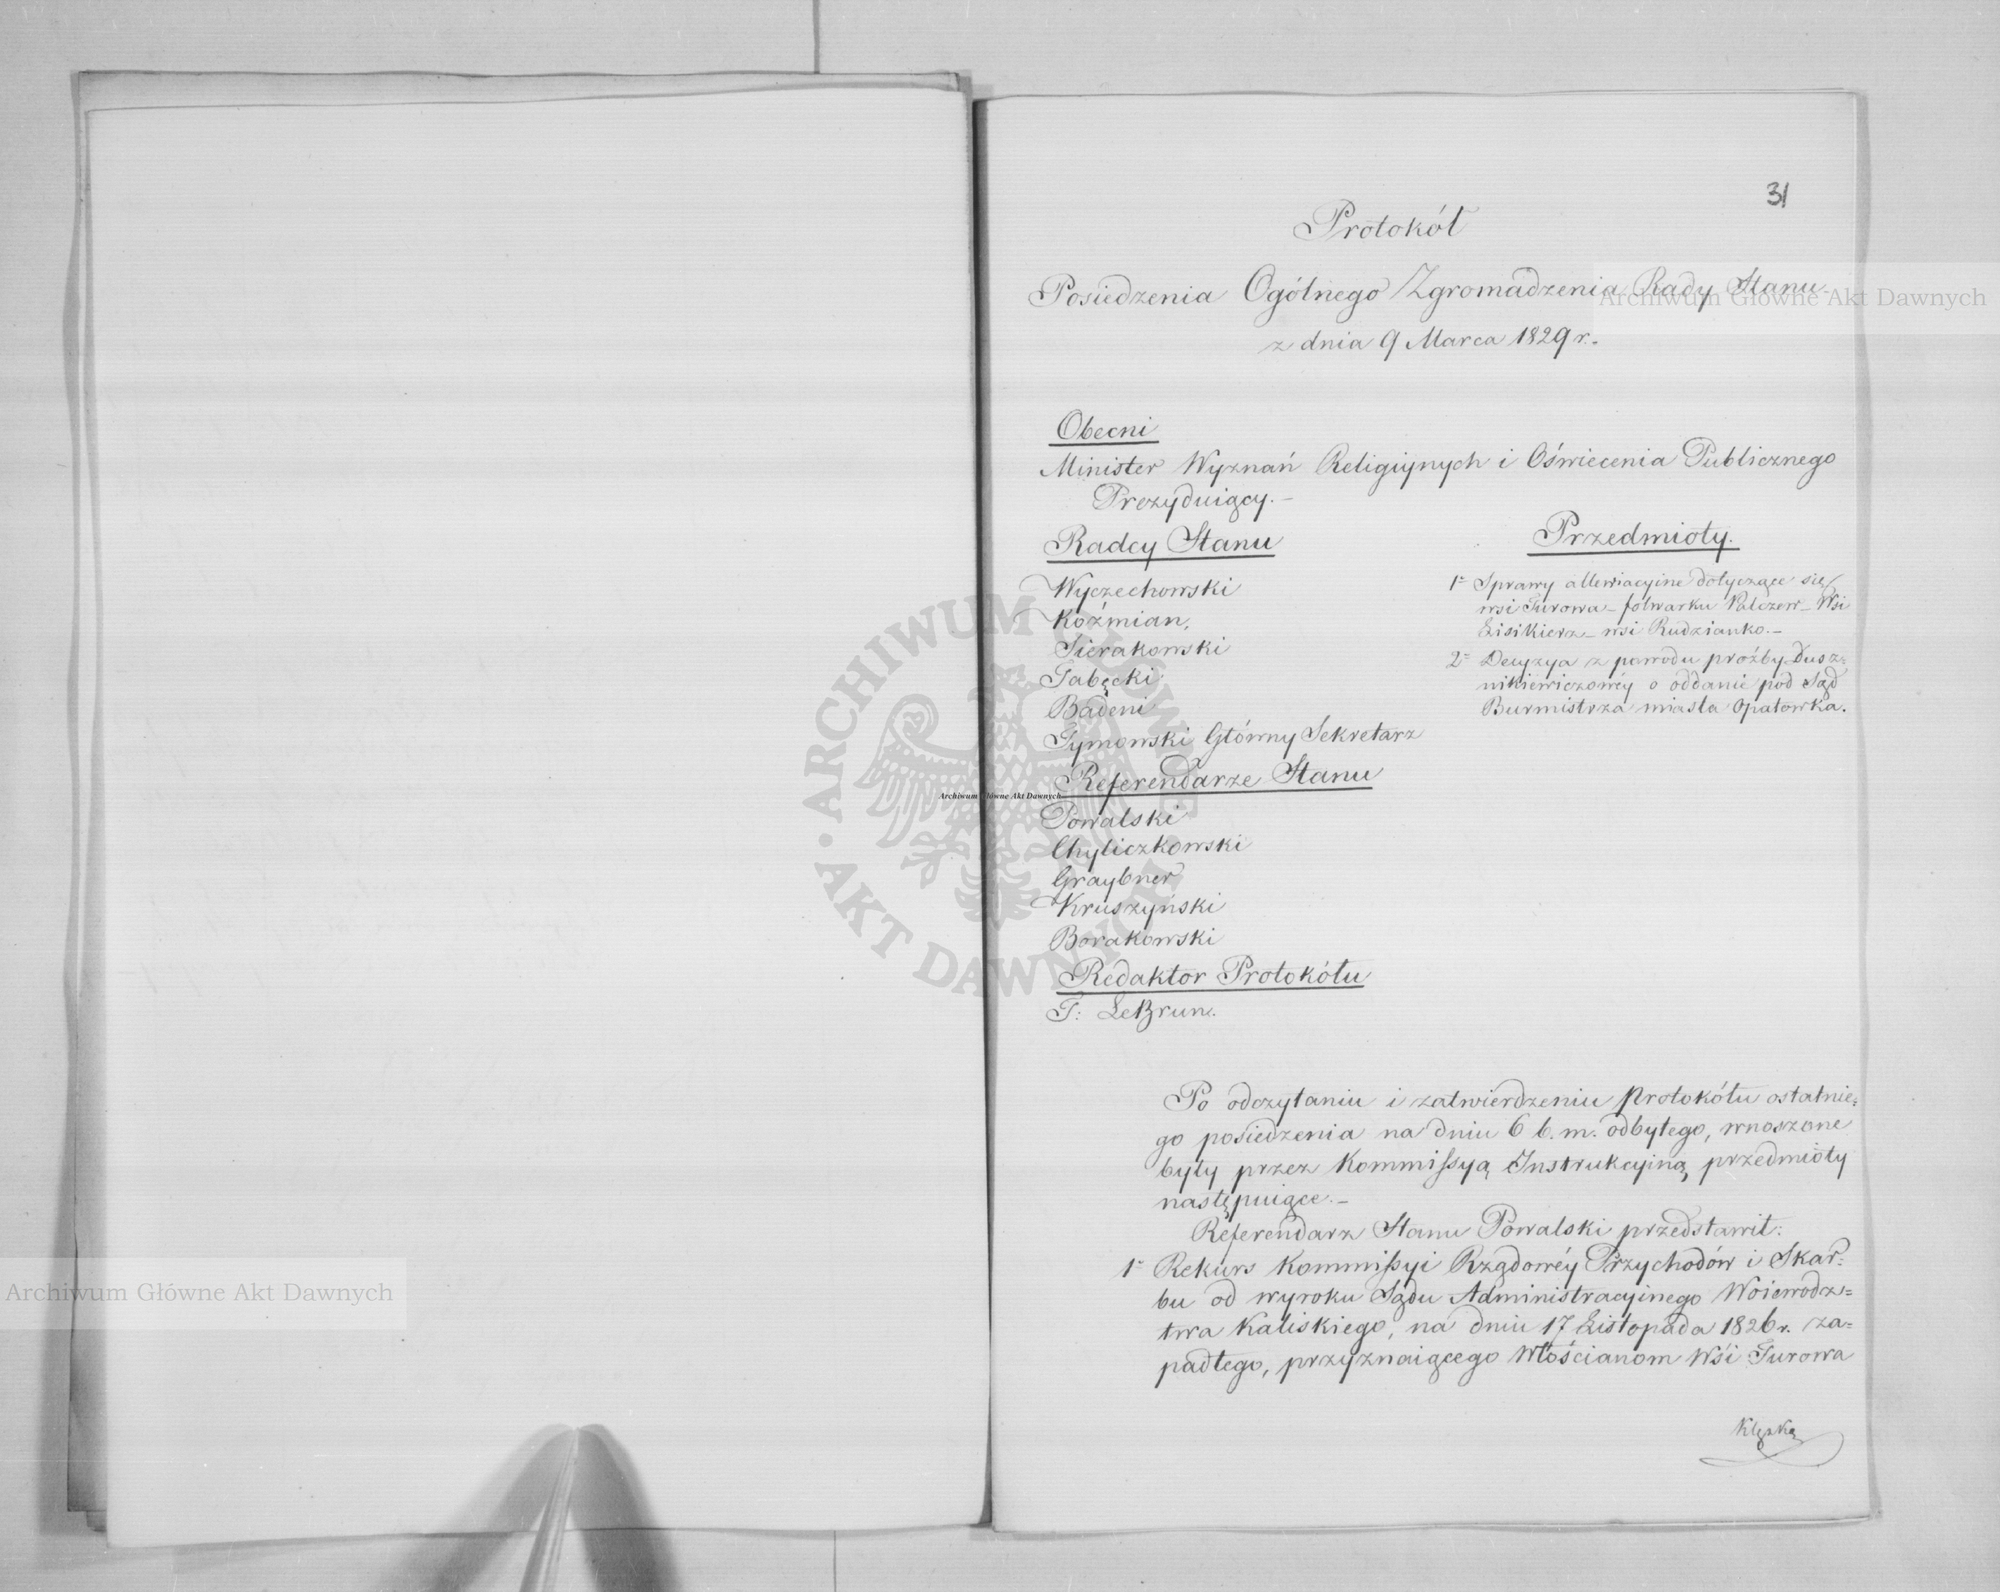 31
Protokół
Posiedzenia Ogólnego Zgromadzenia Rady Stanu
z dnia 9 Marca 1829 r.
Obecni
Minister Wyznań Religiynych i Oświecenia Publicznego
Prezyduiący.
Radcy Stanu
Wyczechowski
Koźmian,
Sierakowski
Tabęcki
Badeni
Tymowski Główny Sekretarz
Referendarze Stanu
Powalski
Chyliczkowski
Graybner
Kruszyński
Borakowski
Redaktor Protokółu
T: LeBrun.
Przedmioty.
1= Sprawy allewiacyine dotyczące się
wsi Turowa – folwarku Walczew – Wsi
Lisikierz – wsi Rudzianko. –
2= Decyzya z powodu proźby Dusz=
nikiewiczowéy o oddanie pod Sąd
Burmistrza miasta Opatowka.
Po odczytaniu i zatwierdzeniu Protokółu ostatnie=
go posiedzenia na dniu 6 b. m. odbytego, wnoszone
były przez Kommissyą Instrukcyiną, przedmioty
następuiące. –
Referendarz Stanu Powalski przedstawił:
1= Rekurs Kommissyi Rządowéy Przychodów i Skar=
bu od wyroku Sądu Administracyinego Woiewodz=
twa Kaliskiego, na dniu 17 Listopada 1826 r. za=
padłego, przyznaiącego Włościanom Wsi Turowa
Archiwum Główne Akt Dawnych
Archiwum Główne Akt Dawnych
Archiwum Główne Akt Dawnych
ARCHIWUM GŁÓWNE · AKT DAWNYCH ·